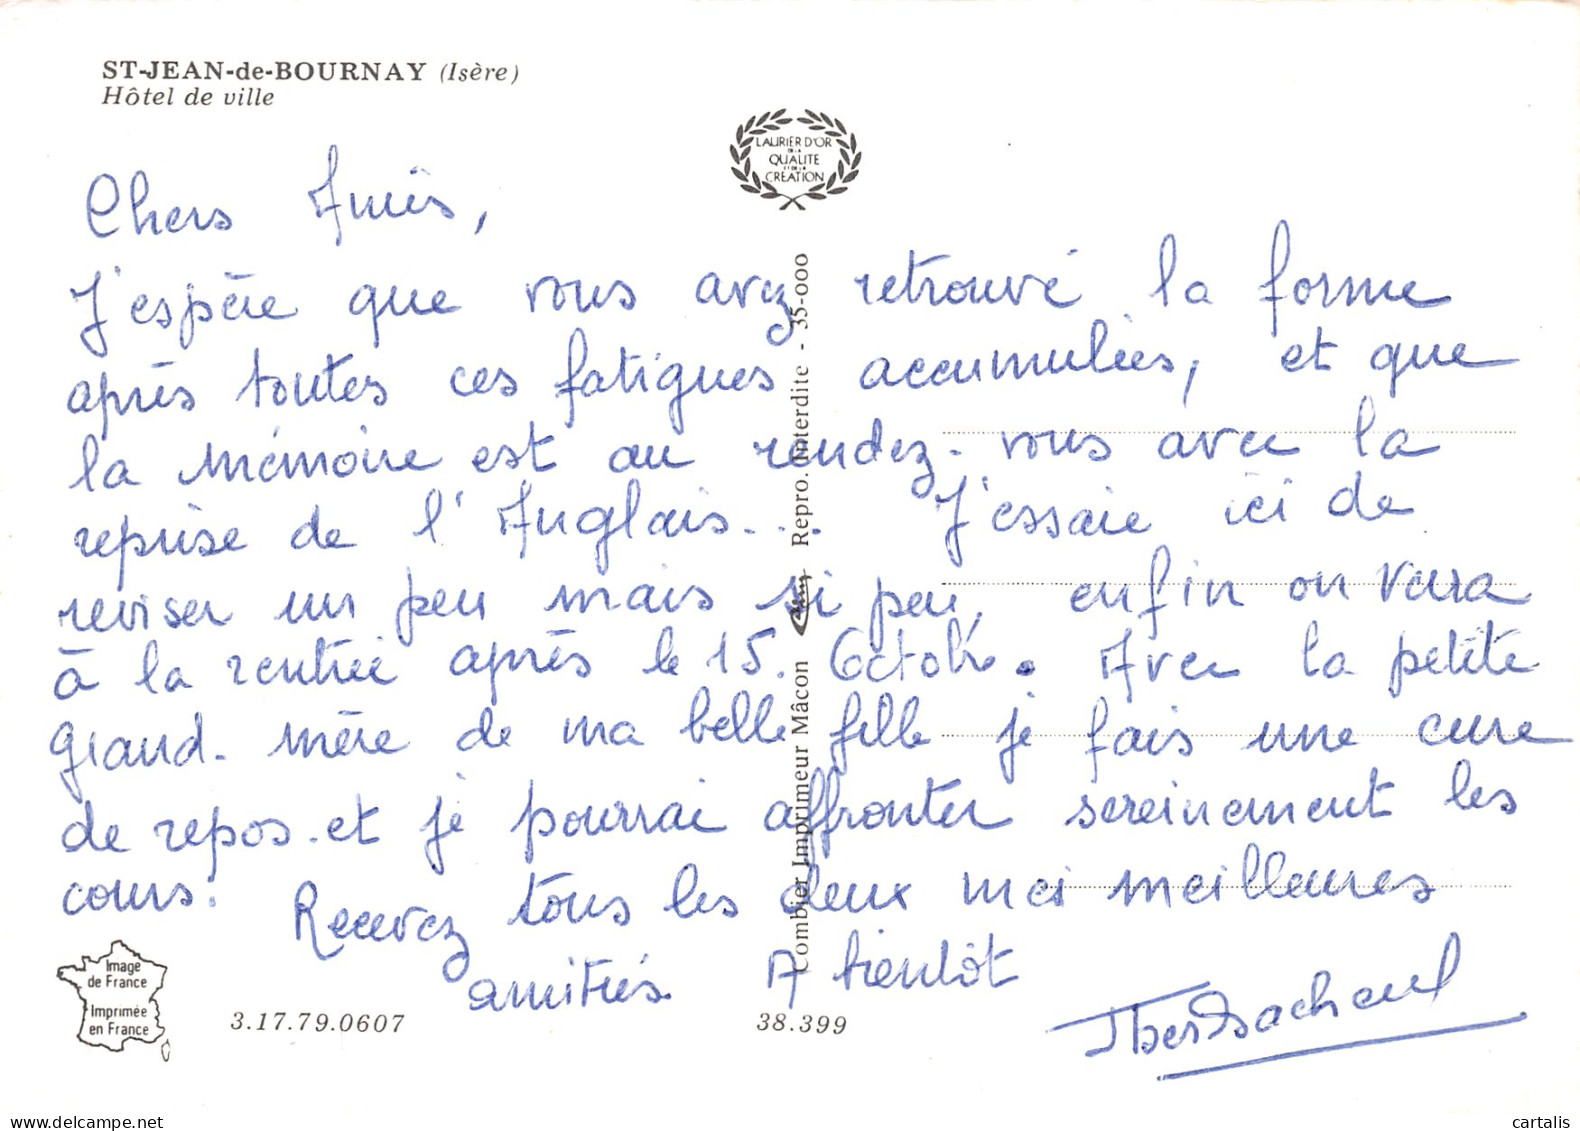 ST-JEAN-de-BOURNAY (Isère)
Hôtel de ville
LAURIER D'OR
DE LA
QUALITE
ET DE LA
CREATION
Chers Amis,
J'espère que vous avez retrouvé la forme
après toutes ces fatigues accumulées, et que
la mémoire est au rendez-vous avec la
reprise de l'Anglais... J'essaie ici de
reviser un peu mais si peu, enfin on verra
à la rentrée après le 15 Octobre. Avec la petite
grand-mère de ma belle fille je fais une cure
de repos et je pourrai affronter sereinement les
cours. Recevez tous les deux mes meilleures
amitiés. A bientôt
Combier Imprimeur Mâcon Repro. Interdite - 35-000
Image
de France
Imprimée
en France
3.17.79.0607
38.399
www.delcampe.net
cartalis